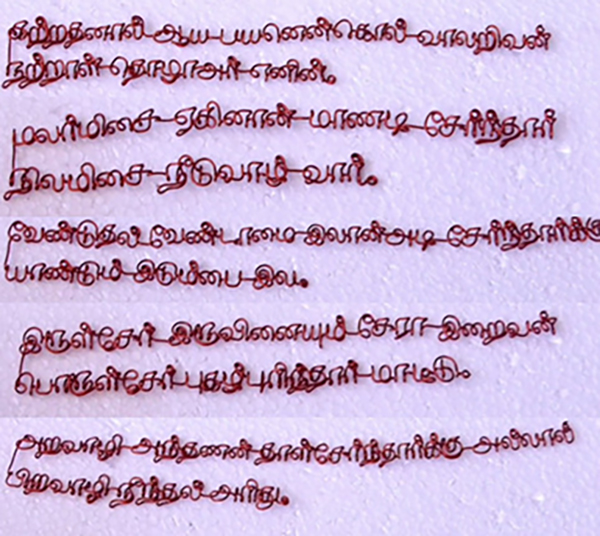 கற்றதனால் ஆய பயனென்கொல் வாலறிவன்
நற்றாள் தொழாஅர் எனின்.
மலர்மிசை ஏகினான் மாணடி சேர்ந்தார்
நிலமிசை நீடுவாழ் வார்.
வேண்டுதல் வேண்டாமை இலான்அடி சேர்ந்தார்க்கு
யாண்டும் இடும்பை இல.
இருள்சேர் இருவினையும் சேரா இறைவன்
பொருள்சேர் புகழ்புரிந்தார் மாட்டு.
அறவாழி அந்தணன் தாள்சேர்ந்தார்க்கு அல்லால்
பிறவாழி நீந்தல் அரிது.